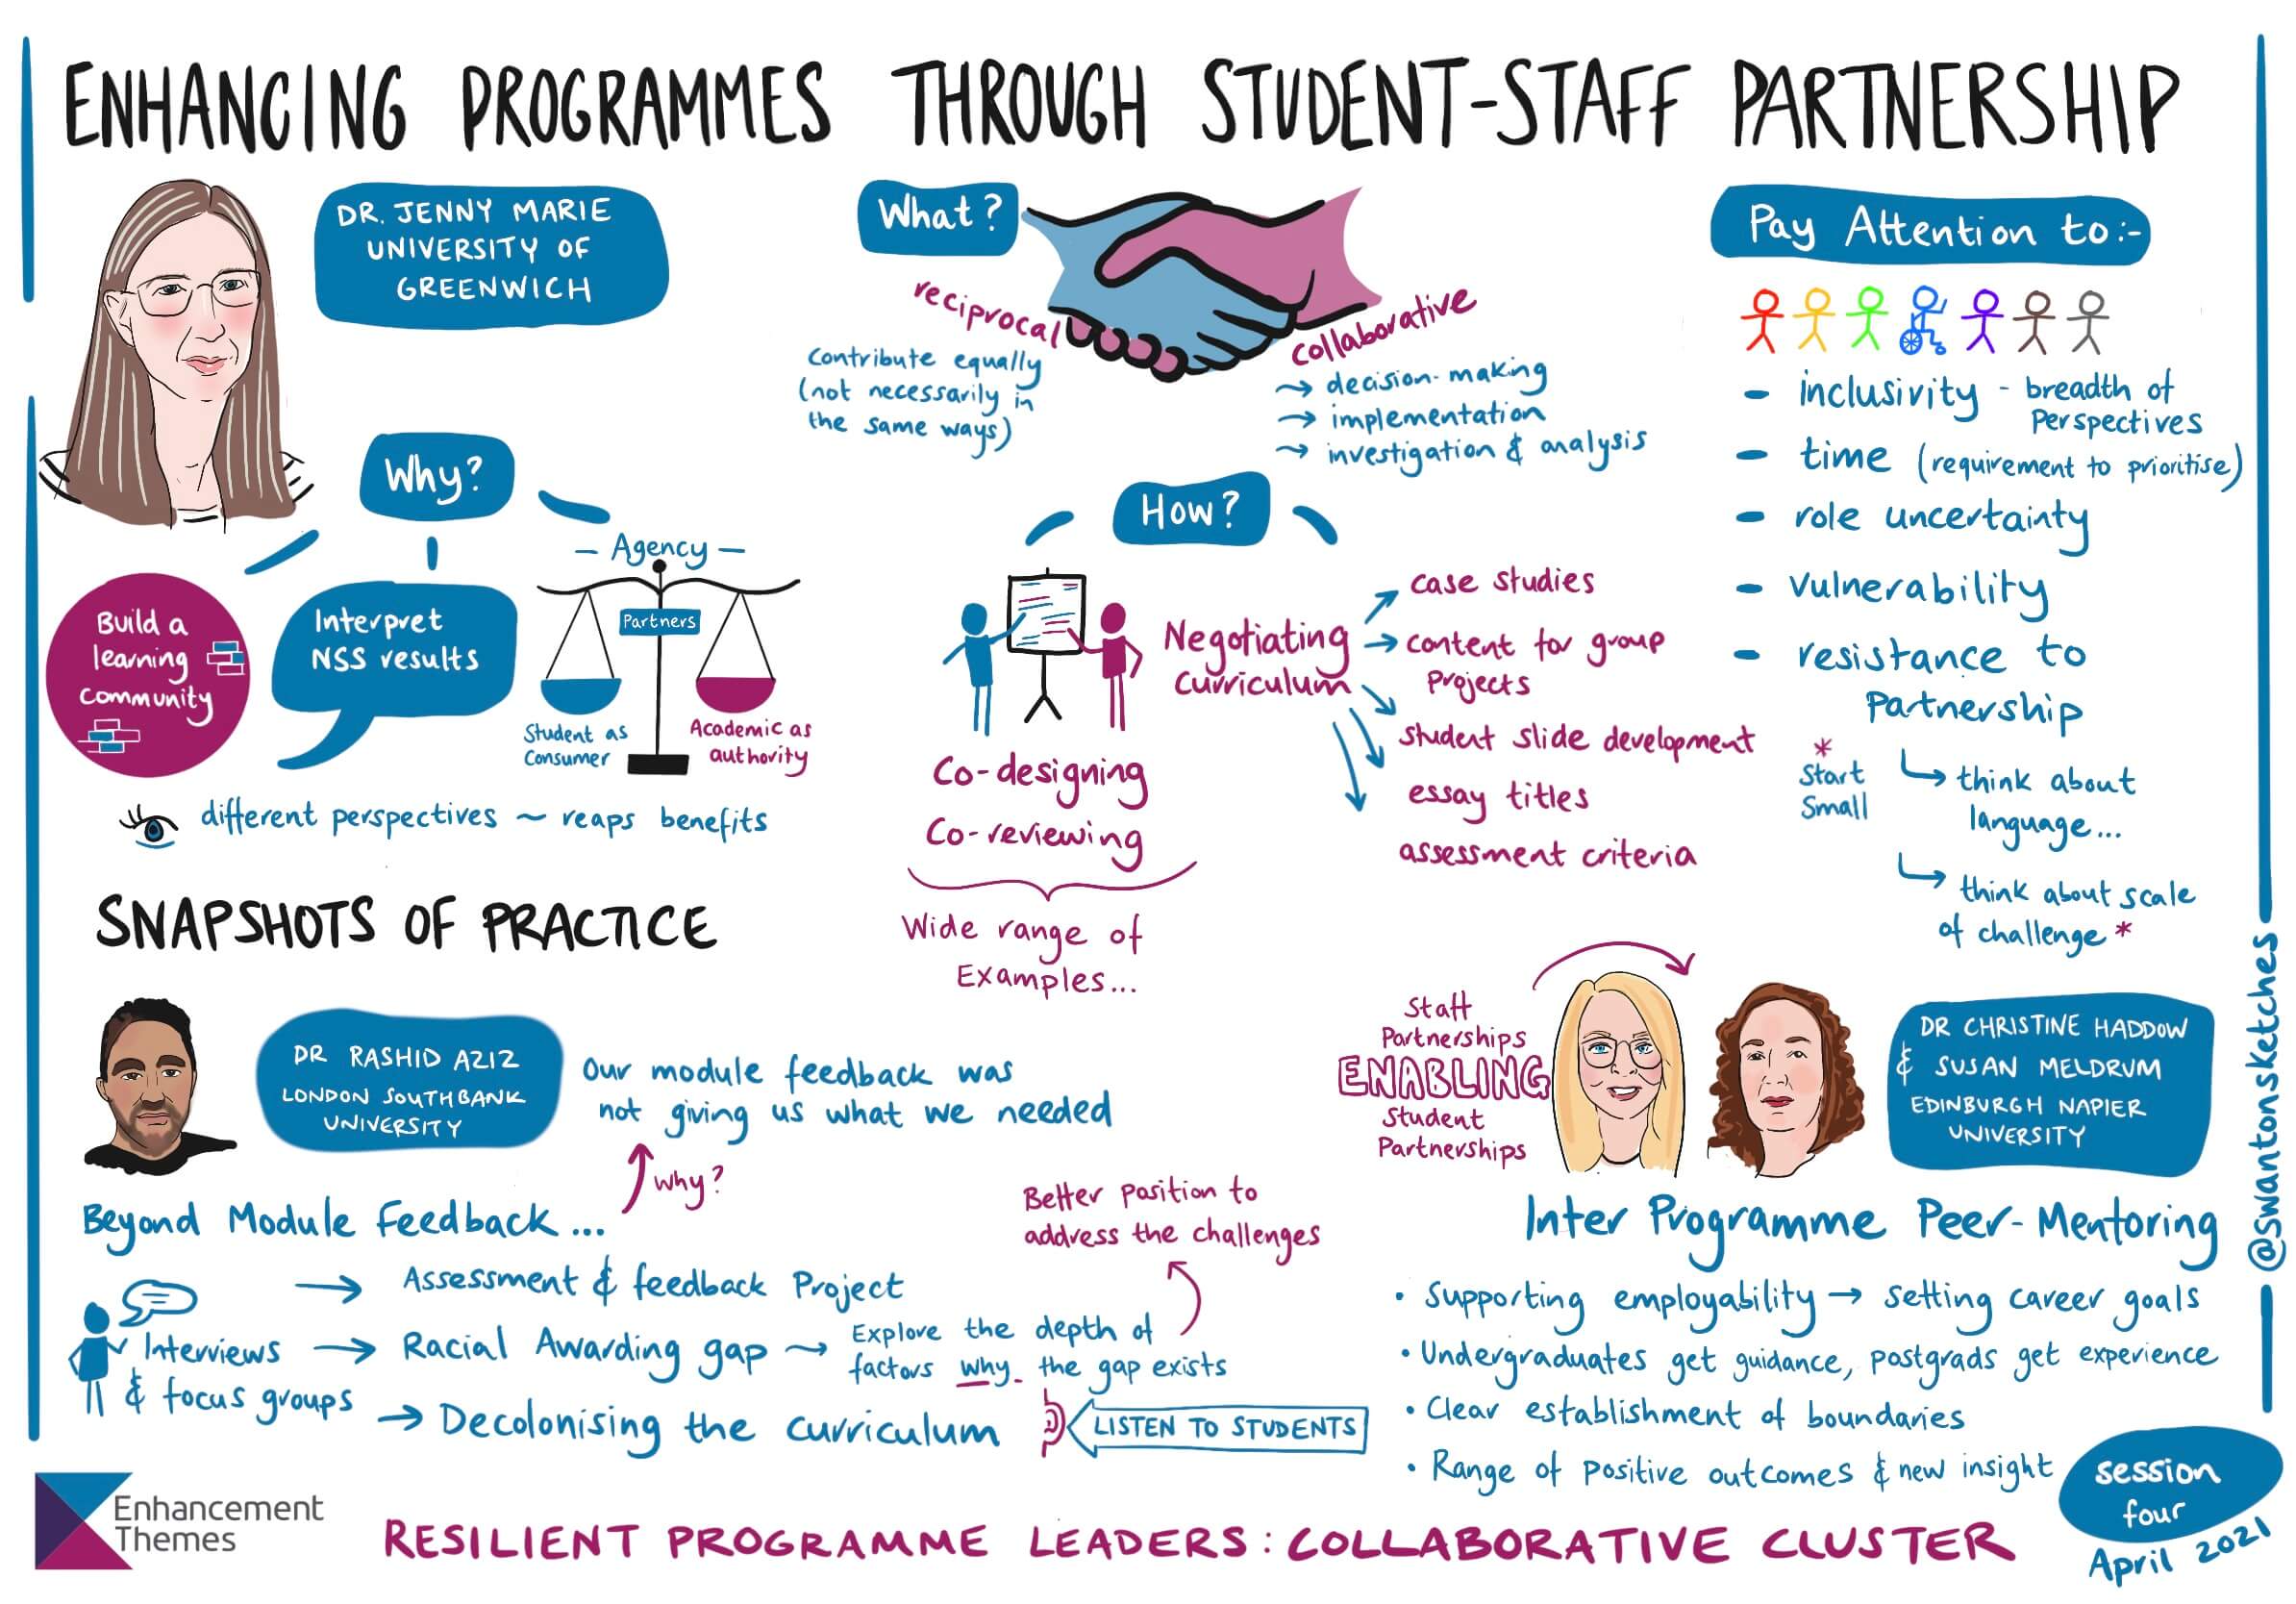 ENHANCING PROGRAMMES THROUGH STUDENT-STAFF PARTNERSHIP
DR. JENNY MARIE
UNIVERSITY OF
GREENWICH
Why?
Build a
learning
community
Interpret
NSS results
- Agency -
Partners
Student as
Consumer
Academic as
authority
different perspectives ~ reaps benefits
What?
reciprocal
Contribute equally
(not necessarily in
the same ways)
collaborative
→ decision-making
→ implementation
→ investigation & analysis
How?
Co-designing
Co-reviewing
Wide range of
Examples...
Negotiating
Curriculum
case studies
content for group
Projects
student slide development
essay titles
assessment criteria
Pay Attention to:-
- inclusivity - breadth of
Perspectives
- time (requirement to prioritise)
- role uncertainty
- vulnerability
- resistance to
Partnership
* Start
Small
think about
language...
think about scale
of challenge *
SNAPSHOTS OF PRACTICE
DR RASHID AZIZ
LONDON SOUTHBANK
UNIVERSITY
Our module feedback was
not giving us what we needed
why?
Beyond Module Feedback...
Interviews
& focus groups
→ Assessment & feedback Project
→ Racial Awarding gap → Explore the depth of
factors why the gap exists
Better position to
address the challenges
→ Decolonising the curriculum
LISTEN TO STUDENTS
Staff
Partnerships
ENABLING
Student
Partnerships
DR CHRISTINE HADDOW
& SUSAN MELDRUM
EDINBURGH NAPIER
UNIVERSITY
Inter Programme Peer-Mentoring
• Supporting employability → setting career goals
• Undergraduates get guidance, postgrads get experience
• Clear establishment of boundaries
• Range of positive outcomes & new insight
@swantonsketches
Enhancement
Themes
RESILIENT PROGRAMME LEADERS: COLLABORATIVE CLUSTER
session
four
April 2021